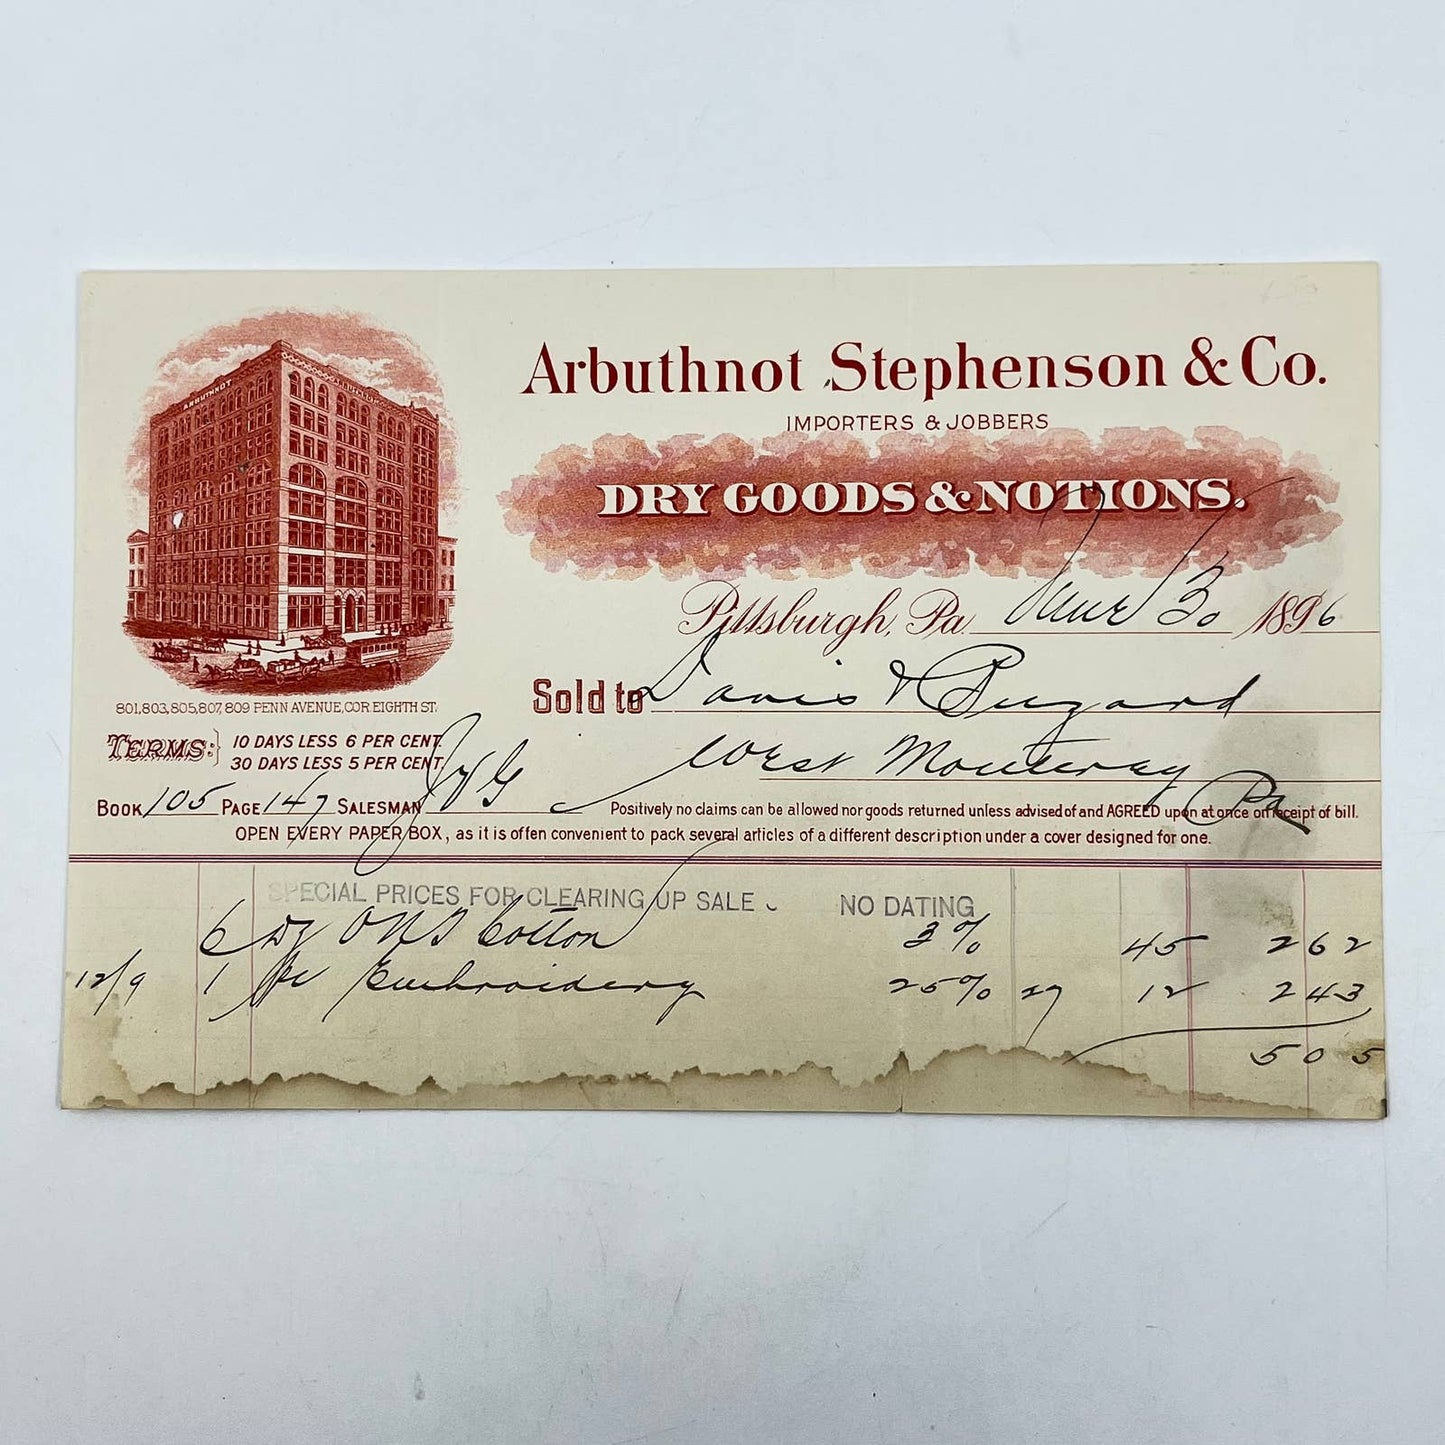 Arbuthnot Stephenson & Co.
IMPORTERS & JOBBERS
DRY GOODS & NOTIONS.
ARBUTHNOT
Pittsburgh, Pa. June 30 1896
Sold to Davis &
West Monterey
Pa
801,803,805,807,809 PENN AVENUE, COR. EIGHTH ST.
TERMS: 10 DAYS LESS 6 PER CENT.
30 DAYS LESS 5 PER CENT.
BOOK 105 PAGE 147 SALESMAN
Positively no claims can be allowed nor goods returned unless advised of and AGREED upon at once on receipt of bill.
OPEN EVERY PAPER BOX, as it is often convenient to pack several articles of a different description under a cover designed for one.
SPECIAL PRICES FOR CLEARING UP SALE NO DATING
6 Dz ONT Cotton 3% 45 2 62
12/9 1 Pc Embroidery 25% 27 12 2 43
5 05